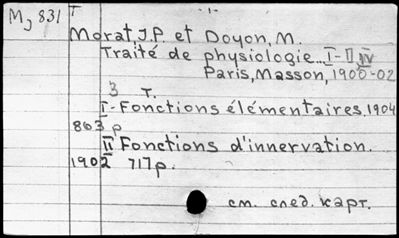 Mj 831
T
- 1 -
Morat, J.P. et Doyon, M.
Traité de physiologie... I-II, IV
Paris, Masson, 1900-02
3 т.
I - Fonctions élémentaires, 1904
863 p
II Fonctions d'innervation.
1902 717 p.
см. след. карт.